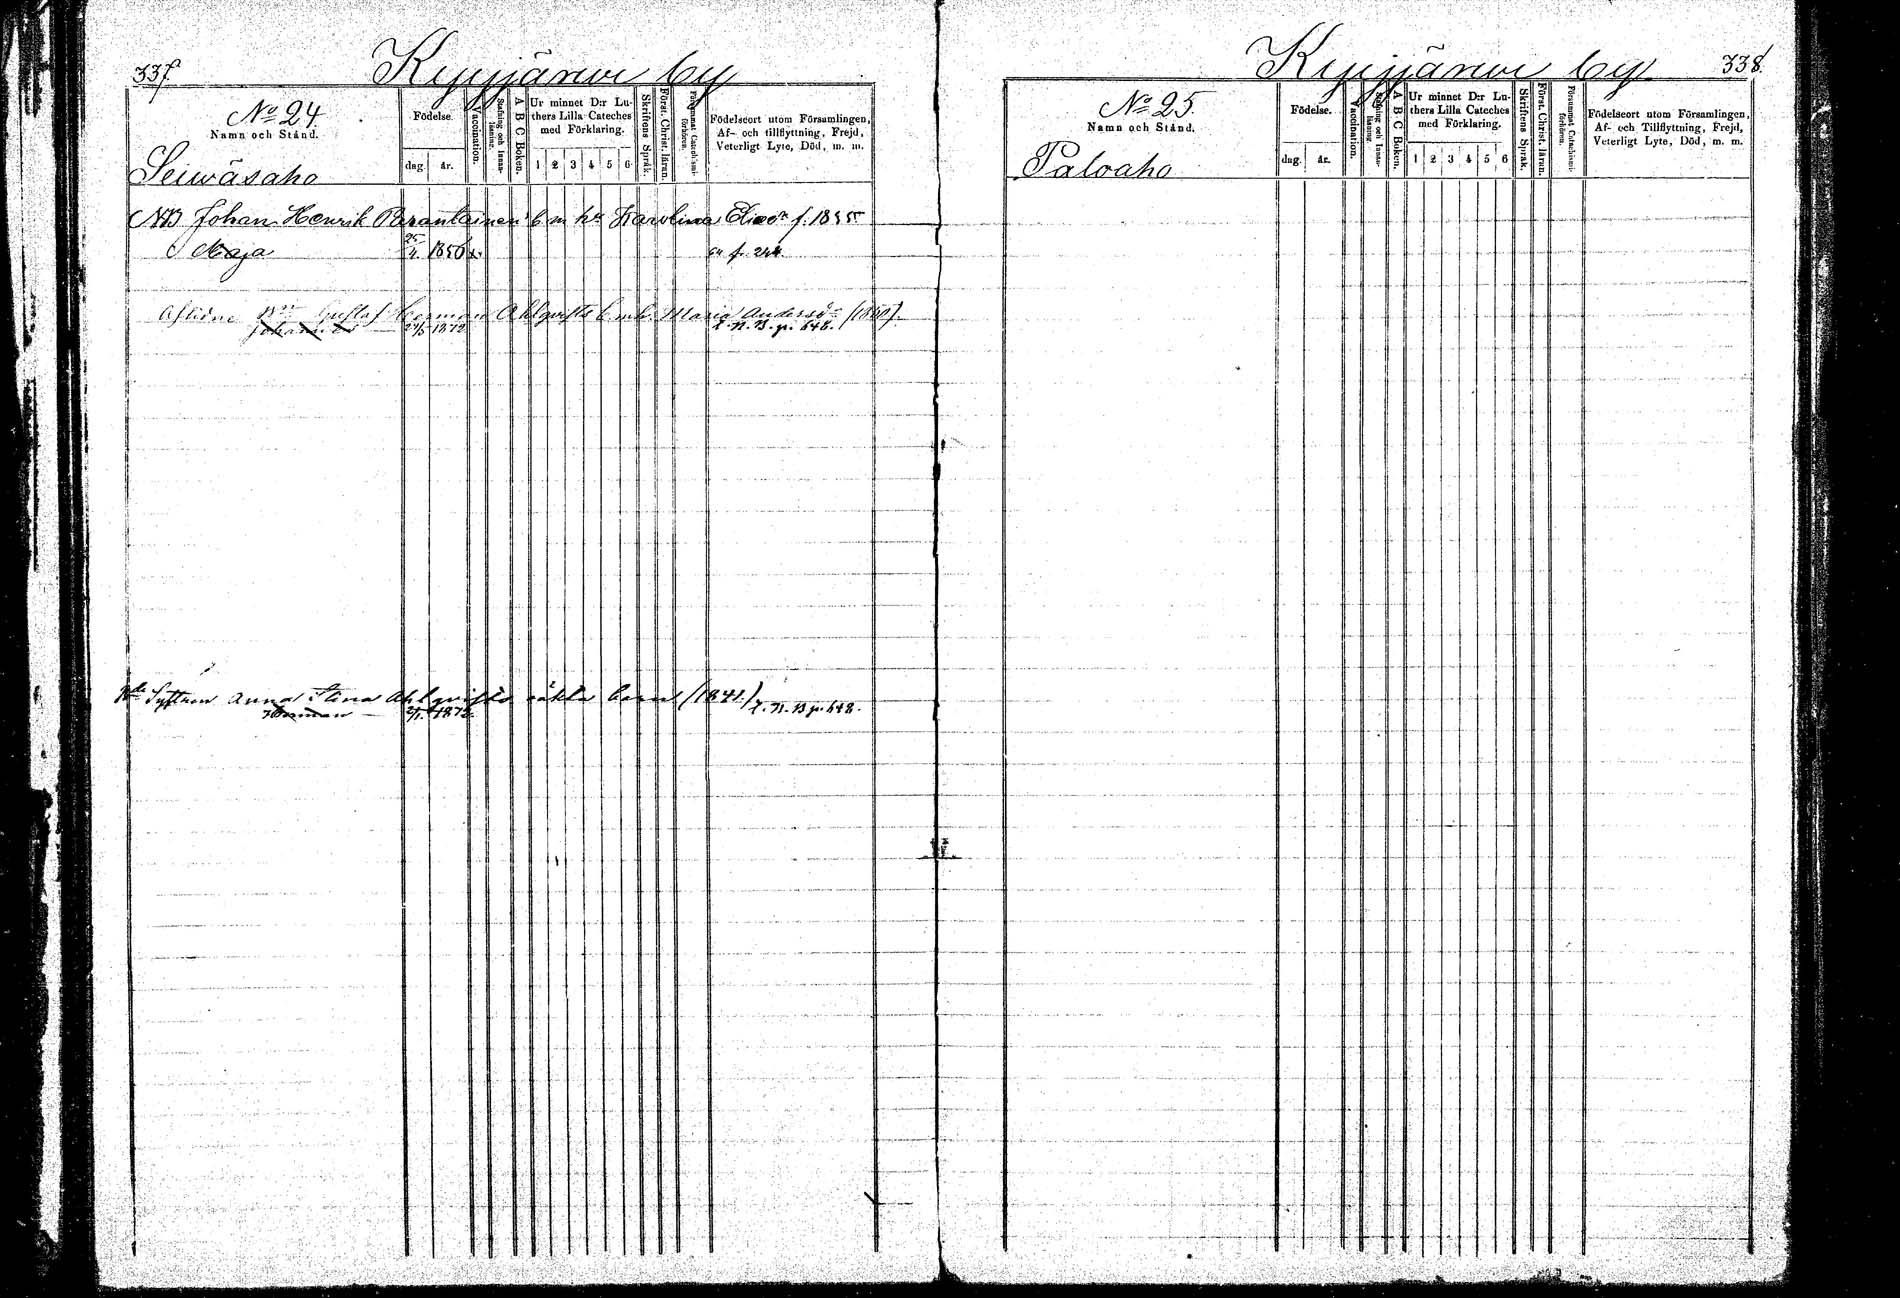 337.
Kyyjärvi by
No 24.
Namn och Stånd.
Födelse.
dag. år.
Vaccination.
Stafning och Innanläsning.
A B C Boken.
Ur minnet D:r Luthers Lilla Cateches med Förklaring.
1 2 3 4 5 6
Skriftens Språk.
Först. Christ. läran.
Försummat Catechismiförhören.
Födelseort utom Församlingen,
Af- och tillflyttning, Frejd,
Veterligt Lyte, Död, m. m.
Seiwäsaho
NB Johan Henrik Parantainen b. m. hu Karolina f. 1855
Maja 25/4. 1856 f. 244.
Aflidne Gustaf Herman Ahlqvists b. m. h. Maria Andersd:r (1850).
Johannes 1872 N. B. p. 648.
Anna Stina Ahlqvists oäkta barn (1841)
Herman 1872 N. B. p. 648.
338.
Kyyjärvi by
No 25.
Namn och Stånd.
Födelse.
dag. år.
Vaccination.
Stafning och Innanläsning.
A B C Boken.
Ur minnet D:r Luthers Lilla Cateches med Förklaring.
1 2 3 4 5 6
Skriftens Språk.
Först. Christ. läran.
Försummat Catechismiförhören.
Födelseort utom Församlingen,
Af- och Tillflyttning, Frejd,
Veterligt Lyte, Död, m. m.
Paloaho